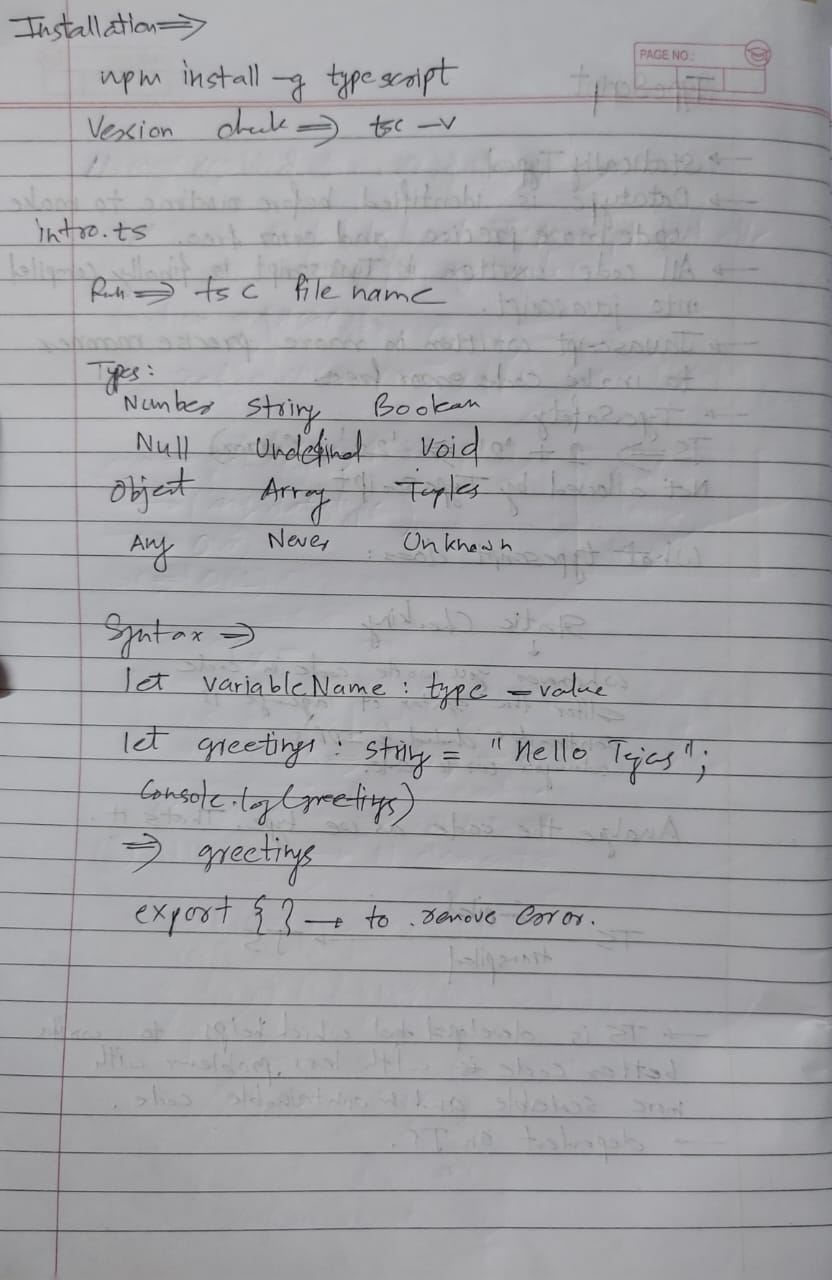 Installation ⇒
PAGE NO.:
npm install -g typescript
Version check ⇒ tsc -v
intro.ts
Run ⇒ tsc file name
Types:
Number String Boolean
Null Undefined Void
Object Array Tuples
Any Never Unknown
Syntax ⇒
let variableName : type = value
let greetings : string = "Hello Tejas";
Console.log(greetings)
⇒ greetings
export { } → to remove Error.